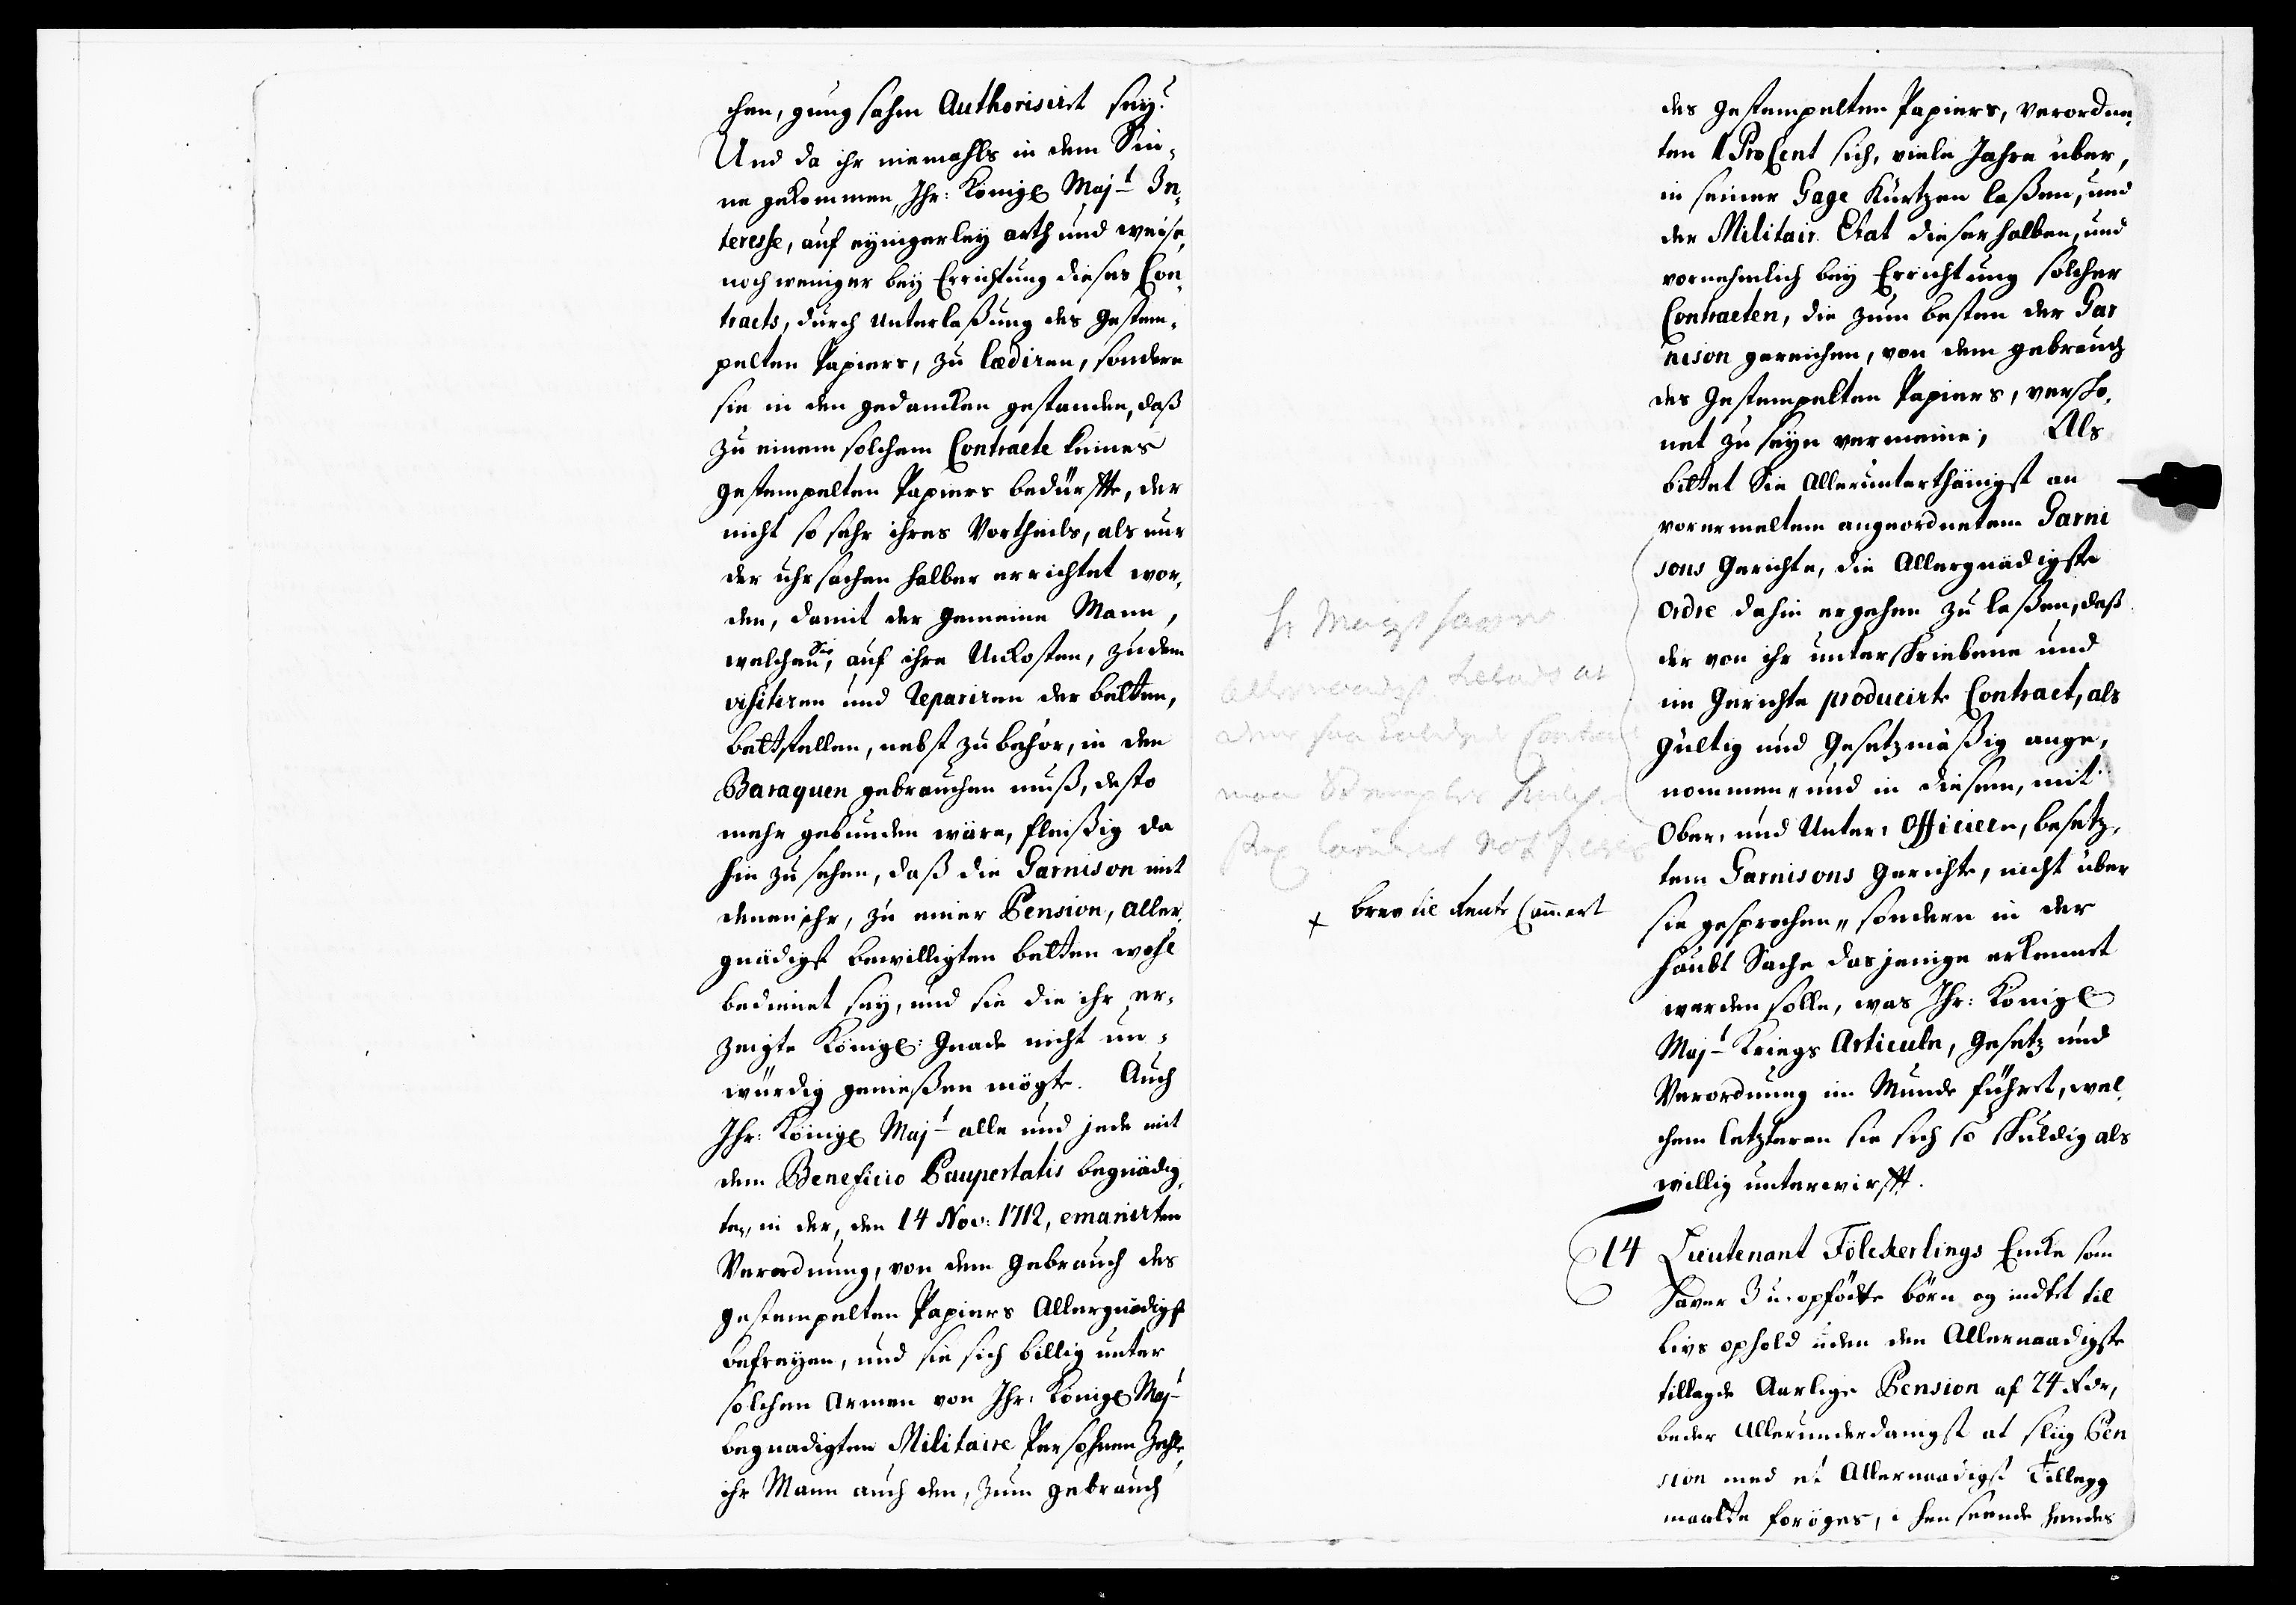 chen, gung sahm Authorisirt sey?
Und da ihr niemahls in dem Sin-
ne gekommen, Ihr: Königl Majt In-
teresse, auf eynigerley arth und weise,
noch weniger bey Errichtung dieses Con-
tracts, durch Unterlaßung des gestem-
pelten Papiers, zu lædiren, sondern
sie in den gedancken gestanden, daß
zu einem solchem Contracte keines
gestempelten Papiers bedürffte, der
nicht so sehr ihres Vortheils, als nur
der uhrsachen halber errichtet wor-
den, damit der gemeine Mann,
welchen Sie, auf ihre Unkosten, zu dem
visitiren und Repariren der betten,
bettstellen, nebst zubehör, in den
Baraquen gebrauchen muß, desto
mehr gebunden wäre, fleißig da
hin zu sehen, daß die Garnison mit
denen ihr, zu einer Pension, aller-
gnädigst bewilligten betten wohl
bedienet sey, und sie die ihr er-
zeigte Königl: Gnade nicht un-
würdig genießen mögte. Auch
Ihr: Königl Majt alle und jede mit
dem Beneficio Paupertatis begnädig-
te, in der, den 14 Nov: 1712, emanirten
Verordnung, von dem Gebrauch des
gestempelten Papiers Allergnädigst
befreyen, und sie sich billig unter
solchen Armen von Ihr: Königl Majt
begnadigten Militaire Persohnen zehle,
ihr Mann auch den, zum gebrauch
des gestempelten Papiers, verordne-
ten 1 ProCent sich, viele Jahre über,
in seiner Gage kürtzen laßen, und
der Militair Etat dieserhalben, und
vornehmlich bey Errichtung solcher
Contracten, die zum besten der Gar
nison gereichen, von dem gebrauch
des gestempelten Papiers, verscho-
net zu seyn vermeine; Als
bittet Sie Allerunterthänigst an
vorermeltem angeordnetem Garni
sons Gerichte, die Allergnädigste
Ordre dahin ergehen zu laßen, daß
der von ihr unterschriebene und
im Gerichte producirte Contract, als
gültig und Gesetzmäßig ange-
nommen, und in diesem, mit
Ober- und Unter-Officiern, besetz-
tem Garnisons Gerichte, nicht über
sie gesprochen, sondern in der
haubt Sache dasjenige erkennet
werden solle, was Ihr: Königl
Majt Kriegs Articuln, Gesetz und
Verordnung im Munde führet, wel-
chem letzteren sie sich so schuldig als
willig unterwirfft.
+ brev til Rente Camert
14 Lieutenant Fölckerlings Encke som
haver 3 u-opfödte börn og indtet til
livs ophold uden den Allernaadigste
tillagde Aarlige Pension af 24 Rdr,
beder Allerunderdanigst at sliig Pen
sion med et Allernaadigst Tillegg
maatte forøges, i henseende hendes